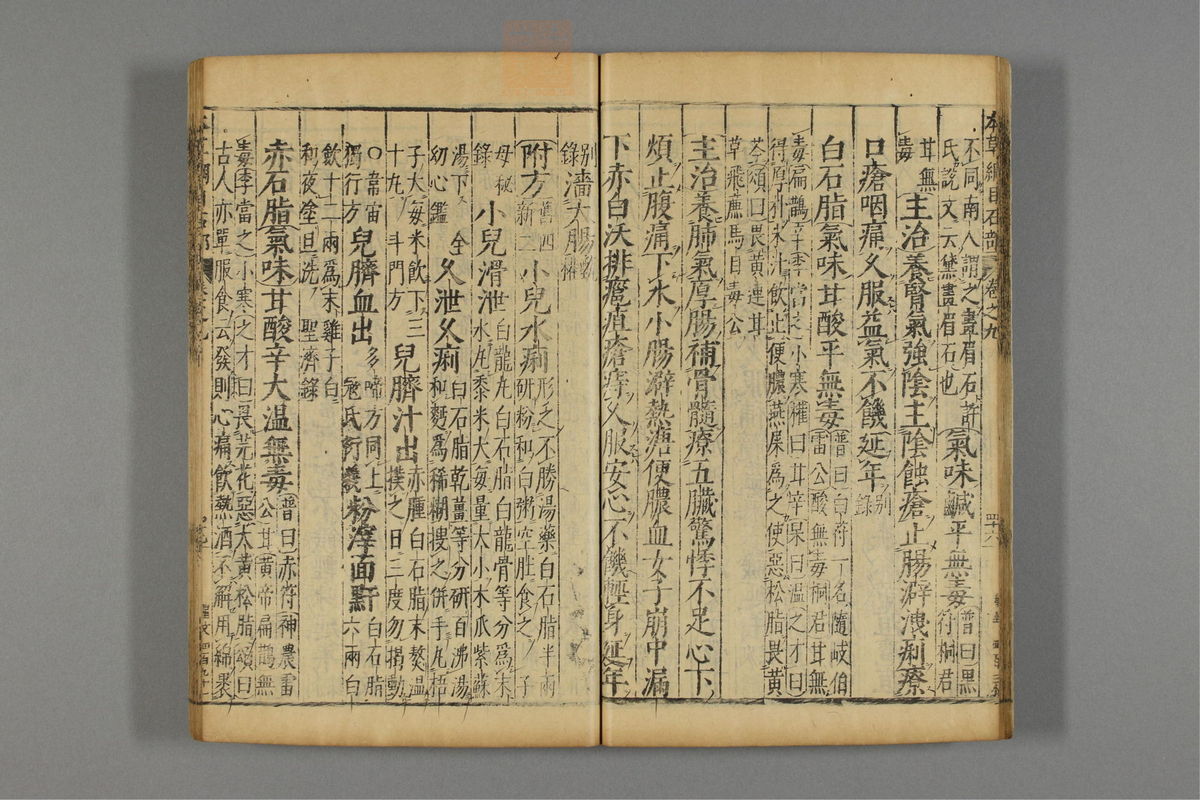 本草綱目石部 卷之九
不同南人謂之畫眉石許
氏說文云黛畫眉石也 氣味鹹平無毒 普曰黑
符桐君
甘無
毒 主治養腎氣強陰主陰蝕瘡止腸澼洩痢療
口瘡咽痛久服益氣不饑延年 別
錄
白石脂 氣味甘酸平無毒 普曰白符一名隨岐伯
雷公酸無毒桐君甘無
毒扁鵲辛李當之小寒權曰甘辛杲曰溫之才曰
得厚朴米汁飲止便膿燕屎爲之使惡松脂畏黃
芩頌曰畏黃連甘
草飛廉馬目毒公
主治養肺氣厚腸補骨髓療五臟驚悸不足心下
煩止腹痛下水小腸澼熱溏便膿血女子崩中漏
下赤白沃排癰疽瘡痔久服安心不饑輕身延年
別
錄 濇大腸 甄
權
附方 舊四
新二 小兒水痢 形羸不勝湯藥白石脂半兩
研粉和白粥空肚食之 子
母秘
錄 小兒滑泄 白龍丸白石脂白龍骨等分爲末
水丸黍米大每量大小木瓜紫蘇
湯下 全
幼心鑑 久泄久痢 白石脂乾薑等分研百沸湯
和麪爲稀糊搜之併手丸梧
子大每米飲下三
十丸 斗門方 兒臍汁出 赤腫白石脂末熬溫
撲之日三度勿揭動
○韋宙
獨行方 兒臍血出 多啼方同上
寇氏衍義 粉滓面䵟 白石脂
六兩白
歛十二兩爲末雞子白
和夜塗旦洗 聖濟錄
赤石脂 氣味甘酸辛大溫無毒 普曰赤符神農雷
公甘黃帝扁鵲無
毒李當之小寒之才曰畏芫花惡大黃松脂頌曰
古人亦單服食云發則心痛飲熱酒不解用綿裹